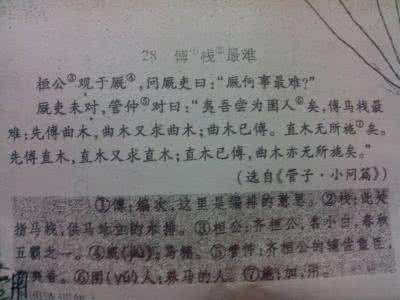 28 傅①栈②最难
桓公③观于厩④,问厩吏曰:“厩何事最难?”
厩吏未对,管仲⑤对曰:“夷吾尝为圉人⑥矣,傅马栈最
难:先傅曲木,曲木又求曲木;曲木已傅。直木无所施⑦矣。
先傅直木,直木又求直木;直木已傅,曲木亦无所施矣。”
(选自《管子·小问篇》)
①傅:编次,这里是编排的意思。②栈:此处
指马栈,供马站立的木排。③桓公:齐桓公,名小白,春秋
五霸之一。④厩(jiù):马棚。⑤管仲:齐桓公的辅佐重臣,
⑥圉(yǔ)人:养马的人。⑦施:加,用。